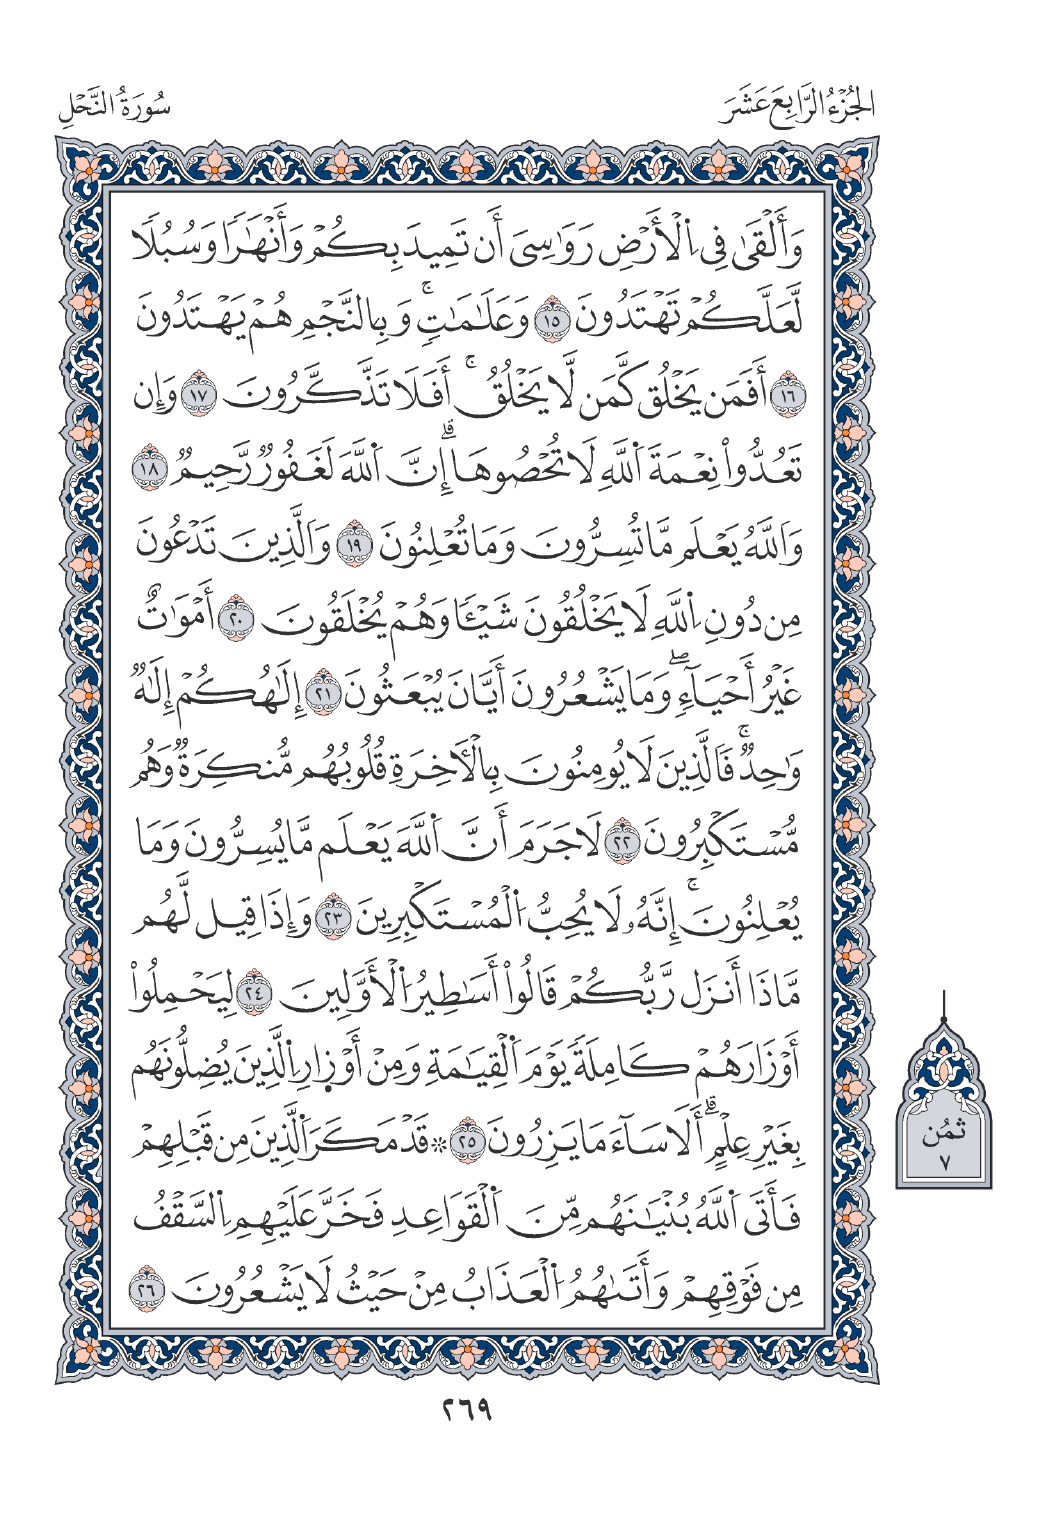 الجُزْءُ الرَّابِعَ عَشَرَ
سُورَةُ النَّحْلِ
وَأَلْقَىٰ فِي اِ۬لْأَرْضِ رَوَٰسِيَ أَن تَمِيدَ بِكُمْ وَأَنْهَٰرٗا وَسُبُلٗا
لَّعَلَّكُمْ تَهْتَدُونَ ١٥ وَعَلَٰمَٰتٖۚ وَبِالنَّجْمِ هُمْ يَهْتَدُونَ
١٦ أَفَمَن يَخْلُق كَّمَن لَّا يَخْلُقُۚ أَفَلَا تَذَّكَّرُونَ ١٧ وَإِن
تَعُدُّواْ نِعْمَةَ اَ۬للَّهِ لَا تُحْصُوهَاۗ إِنَّ اَ۬للَّهَ لَغَفُورٞ رَّحِيمٞ ١٨
وَاَللَّهُ يَعْلَم مَّا تُسِرُّونَ وَمَا تُعْلِنُونَ ١٩ وَاَلَّذِينَ تَدْعُونَ
مِن دُونِ اِ۬للَّهِ لَا يَخْلُقُونَ شَيْـٔٗا وَهُمْ يُخْلَقُونَ ٢٠ أَمْوَٰتٌ
غَيْرُ أَحْيَآءٖۖ وَمَا يَشْعُرُونَ أَيَّانَ يُبْعَثُونَ ٢١ إِلَٰهُكُمْ إِلَٰهٞ
وَٰحِدٞۚ فَالَّذِينَ لَا يُومِنُونَ بِالْأٓخِرَةِ قُلُوبُهُم مُّنكِرَةٞ وَهُم
مُّسْتَكْبِرُونَ ٢٢ لَا جَرَمَ أَنَّ اَ۬للَّهَ يَعْلَم مَّا يُسِرُّونَ وَمَا
يُعْلِنُونَۚ إِنَّهُۥ لَا يُحِبُّ اُ۬لْمُسْتَكْبِرِينَ ٢٣ وَإِذَا قِيل لَّهُم
مَّاذَا أَنزَل رَّبُّكُمْ قَالُواْ أَسَٰطِيرُ اُ۬لْأَوَّلِينَ ٢٤ لِيَحْمِلُواْ
أَوْزَارَهُمْ كَامِلَةٗ يَوْمَ اَ۬لْقِيَٰمَةِ وَمِنْ أَوْزِارِ اِ۬لَّذِينَ يُضِلُّونَهُم
بِغَيْرِ عِلْمٍۗ أَلَا سَآءَ مَا يَزِرُونَ ٢٥ ۞ قَدْ مَكَرَ اَ۬لَّذِينَ مِن قَبْلِهِمْ
فَأَتَى اَ۬للَّهُ بُنْيَٰنَهُم مِّنَ اَ۬لْقَوَاعِدِ فَخَرَّ عَلَيْهِمِ اِ۬لسَّقْفُ
مِن فَوْقِهِمْ وَأَتَىٰهُمُ اُ۬لْعَذَابُ مِنْ حَيْثُ لَا يَشْعُرُونَ ٢٦
ثمُن
٧
٢٦٩